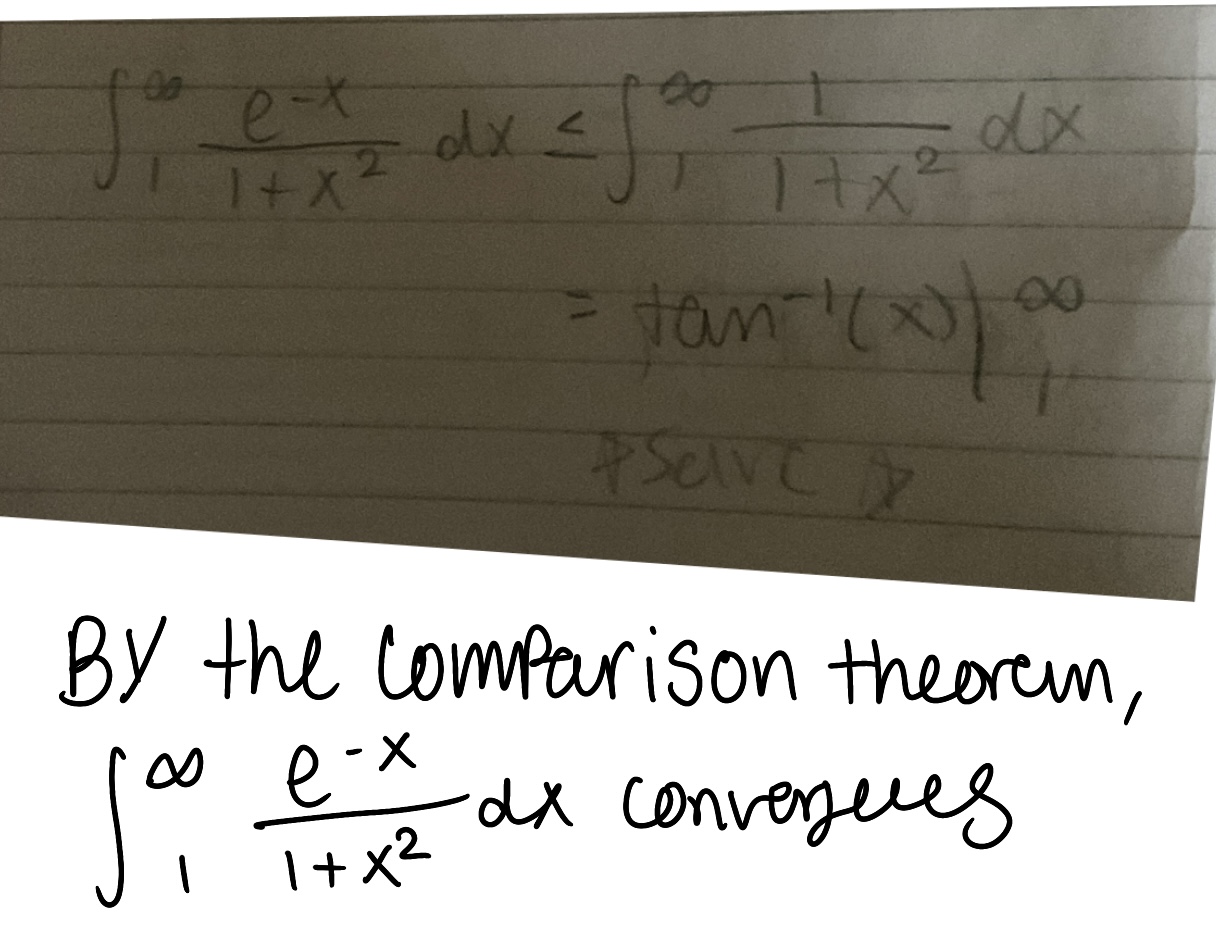 ∫₁^∞ e^-x / 1+x² dx ≤ ∫₁^∞ 1 / 1+x² dx
= tan⁻¹(x)|₁^∞
*Solve *
BY the comparison theorem,
∫₁^∞ e^-x / 1+x² dx convergues